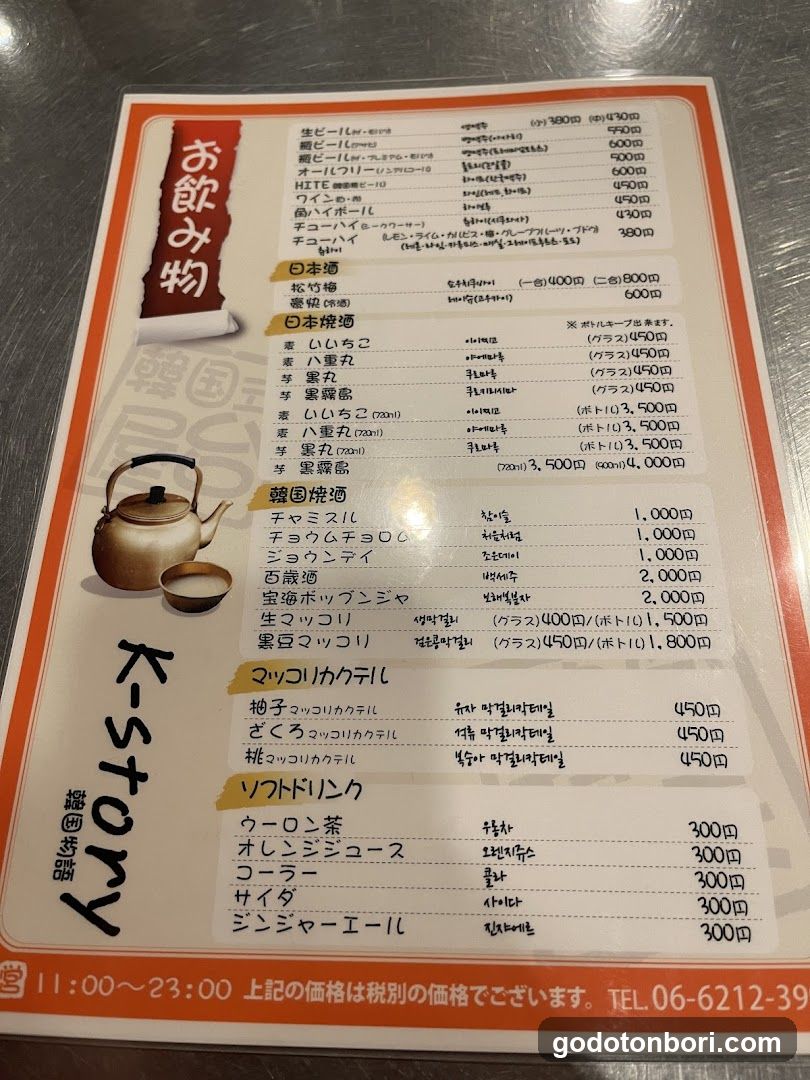 お飲み物
生ビール(ザ・モルツ) 생맥주 (小)380円 (中)430円
瓶ビール(アサヒ) 병맥주(아사히) 550円
瓶ビール(ザ・プレミアム・モルツ) 병맥주(프레미엄모르츠) 600円
オールフリー(ノンアルコール) 500円
HITE(韓国瓶ビール) 하이트(한국맥주) 600円
ワイン(白・赤) 와인(레드,화이트) 450円
角ハイボール 하이볼 450円
チューハイ(シークワーサー) 츄하이(시쿠와사) 430円
チューハイ (レモン・ライム・カルピス・梅・グレープフルーツ・ブドウ) 380円
츄하이 (레몬·라임·카루피스·매실·그레이프후르츠·포도)
日本酒
松竹梅 쇼우치쿠바이 (一合)400円 (二合)800円
豪快(冷酒) 레이슈(고우카이) 600円
日本焼酒 ※ ボトルキープ出来ます。
麦 いいちこ 이이찌고 (グラス)450円
麦 八重丸 야에마루 (グラス)450円
芋 黒丸 쿠로마루 (グラス)450円
芋 黒霧島 쿠로키리시마 (グラス)450円
麦 いいちこ(720ml) 이이찌고 (ボトル)3,500円
麦 八重丸(720ml) 야에마루 (ボトル)3,500円
芋 黒丸(720ml) 쿠로마루 (ボトル)3,500円
芋 黒霧島 (720ml)3,500円 (900ml)4,000円
韓国焼酒
チャミスル 참이슬 1,000円
チョウムチョロム 처음처럼 1,000円
ジョウンデイ 조은데이 1,000円
百歳酒 백세주 2,000円
宝海ボップンジャ 보해복분자 2,000円
生マッコリ 생막걸리 (グラス)400円/(ボトル)1,500円
黒豆マッコリ 검은콩막걸리 (グラス)450円/(ボトル)1,800円
マッコリカクテル
柚子マッコリカクテル 유자 막걸리칵테일 450円
ざくろマッコリカクテル 석류 막걸리칵테일 450円
桃マッコリカクテル 복숭아 막걸리칵테일 450円
ソフトドリンク
ウーロン茶 우롱차 300円
オレンジジュース 오렌지쥬스 300円
コーラー 콜라 300円
サイダ 사이다 300円
ジンジャーエール 진쟈에르 300円
K-Story
韓国物語
営 11:00〜23:00 上記の価格は税別の価格でございます。 TEL.06-6212-39
godotonbori.com